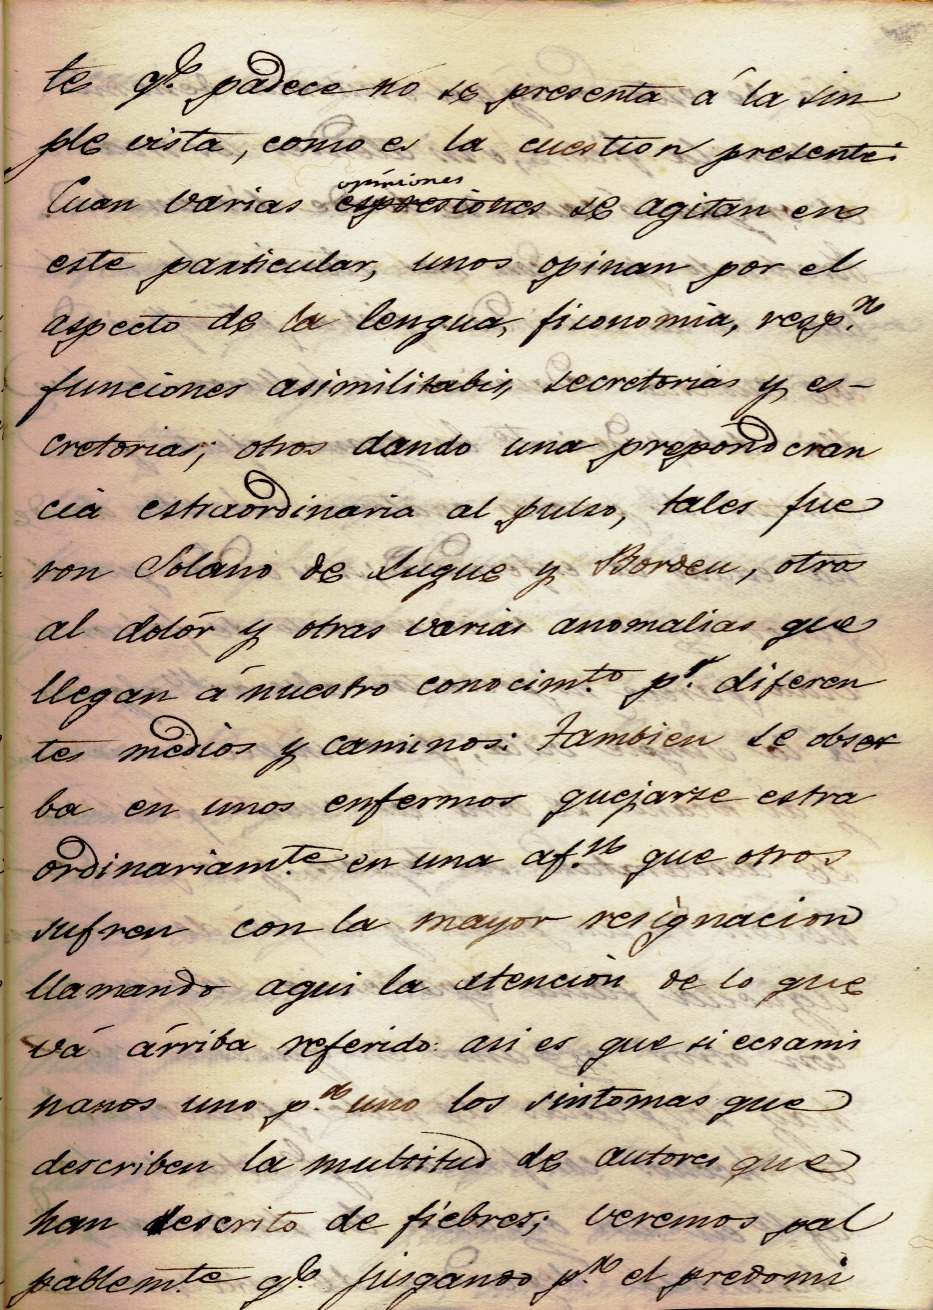 te qe. padece no se presenta á la sin
ple vista, como es la cuestion presente:
Cuan varias opiniones espresiones se agitan en
este particular, unos opinan por el
aspecto de la lengua, ficonomia, resp.n
funciones asimilitabis, secretorias y es-
cretorias; otros dando una preponderan
cia estraordinaria al pulso, tales fue
ron Solano de Luque y Bordeu, otros
al dolór y otras varias anomalias que
llegan á nuestro conocim.to pr. diferen
tes medios y caminos: tambien se obser
ba en unos enfermos quejarse estra
ordinariam.te en una af.n que otros
sufren con la mayor resignacion
llamando aqui la atención de lo que
vá árriba referido: asi es que si ecsami
namos uno p.r uno los sintomas que
describen la multitud de autores que
han descrito de fiebres; veremos pal
pablem.te qe. jusgando p.r el predomi